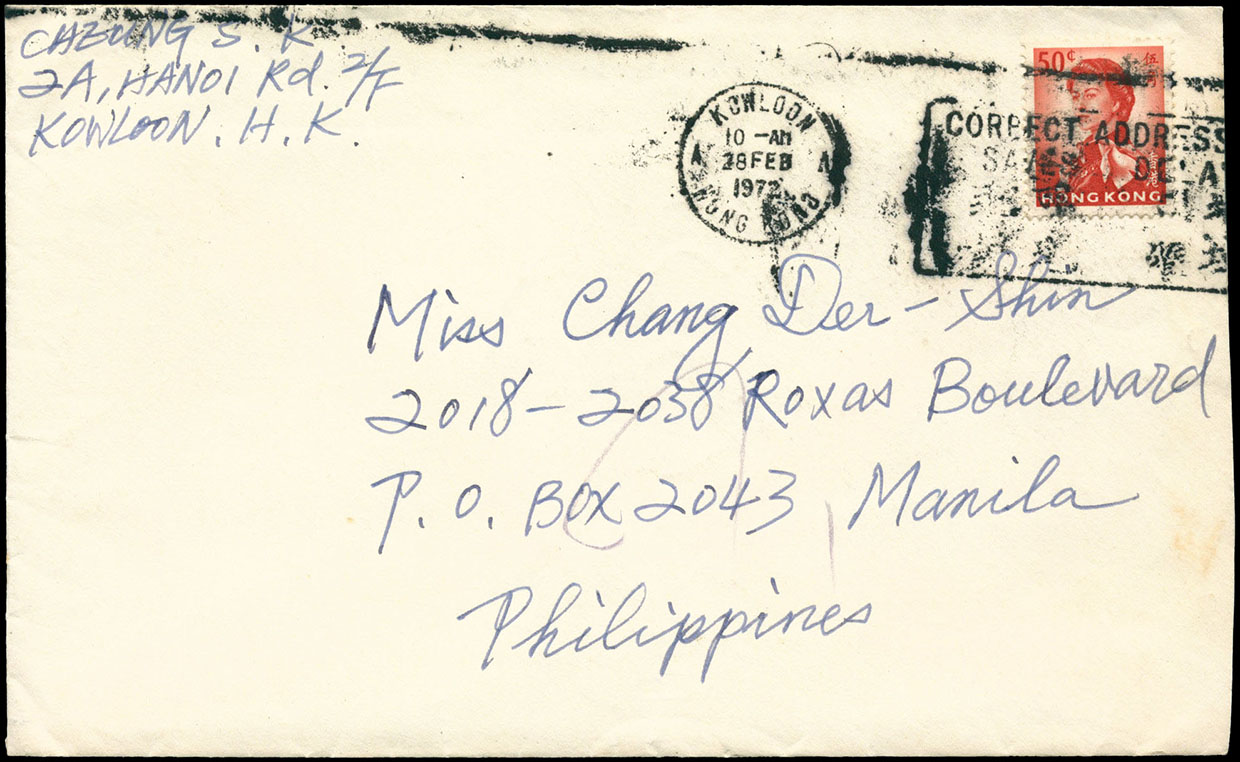 CHEUNG S. K
2A, HANOI Rd. 2/F
KOWLOON. H. K.
KOWLOON
10 - AM
28 FEB
1972
HONG KONG
50¢
CORRECT ADDRESS
SAVES DELAY
HONG KONG
Miss Chang Der-Shin
2018-2038 Roxas Boulevard
P. O. Box 2043 Manila
Philippines